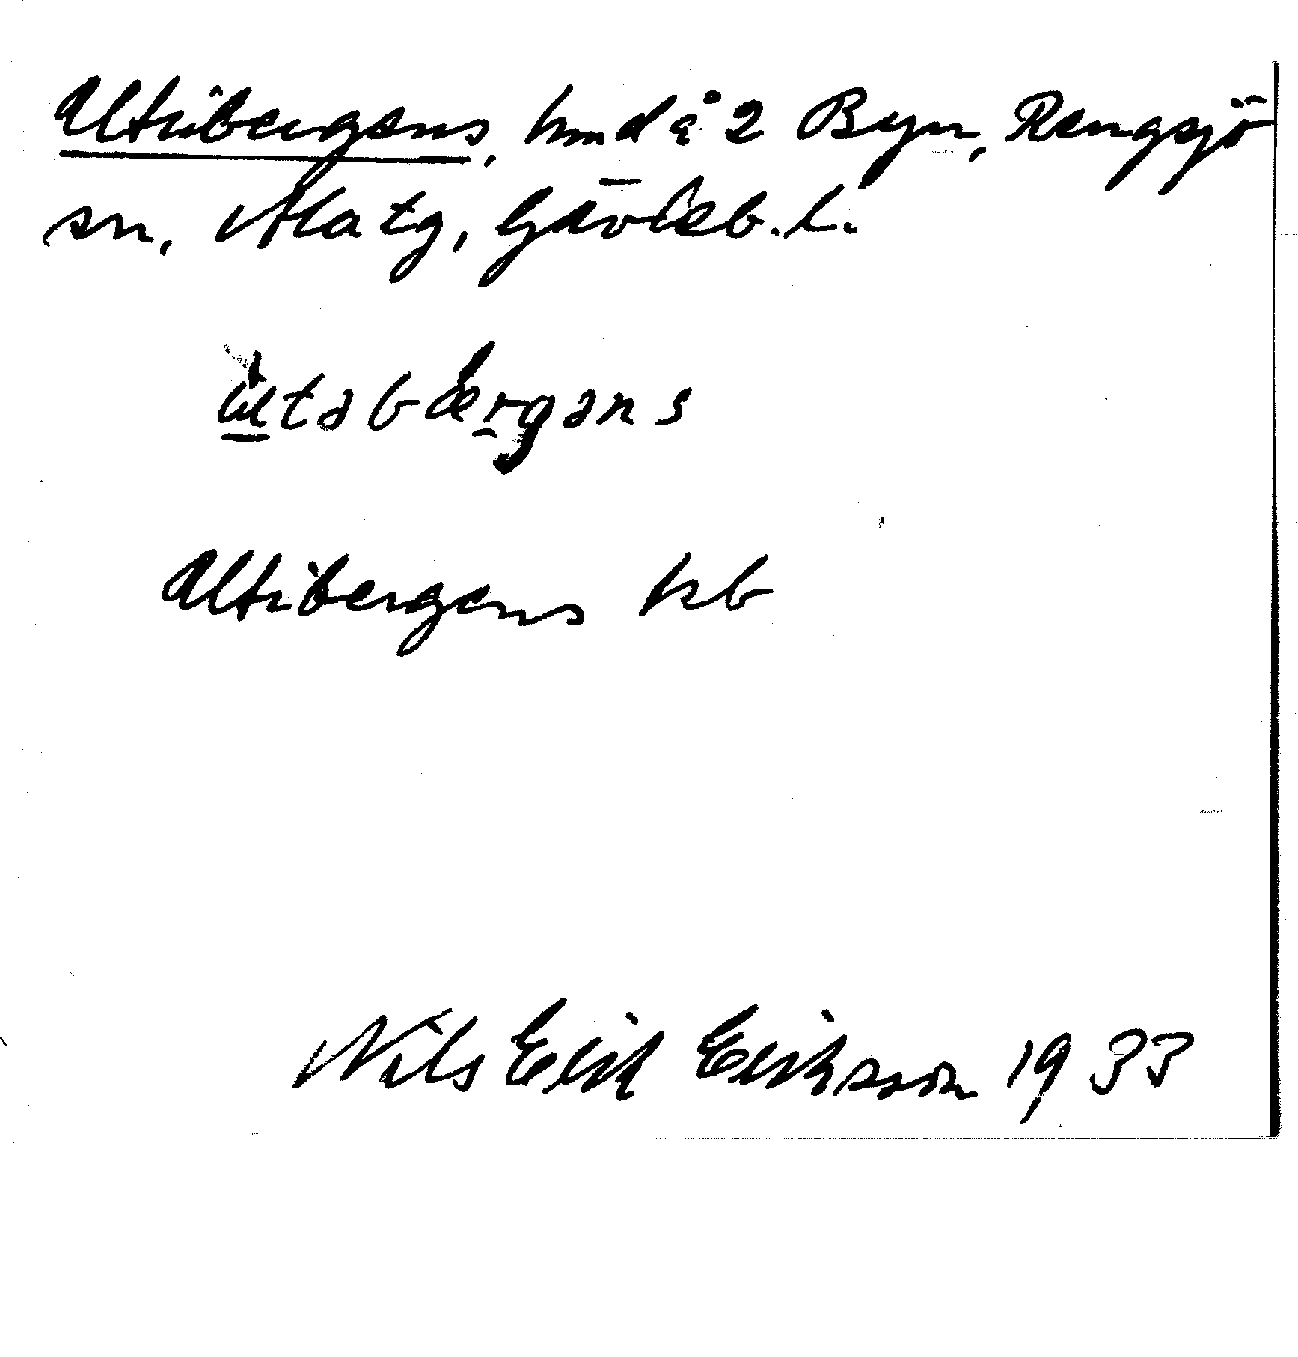 Utibergens, hmd å 2 Byn, Rengsjö
sn, Alatg, Gävleb. l.
ùtəbærgəns
Utibergens kb
Nils Erik Eriksson 1933